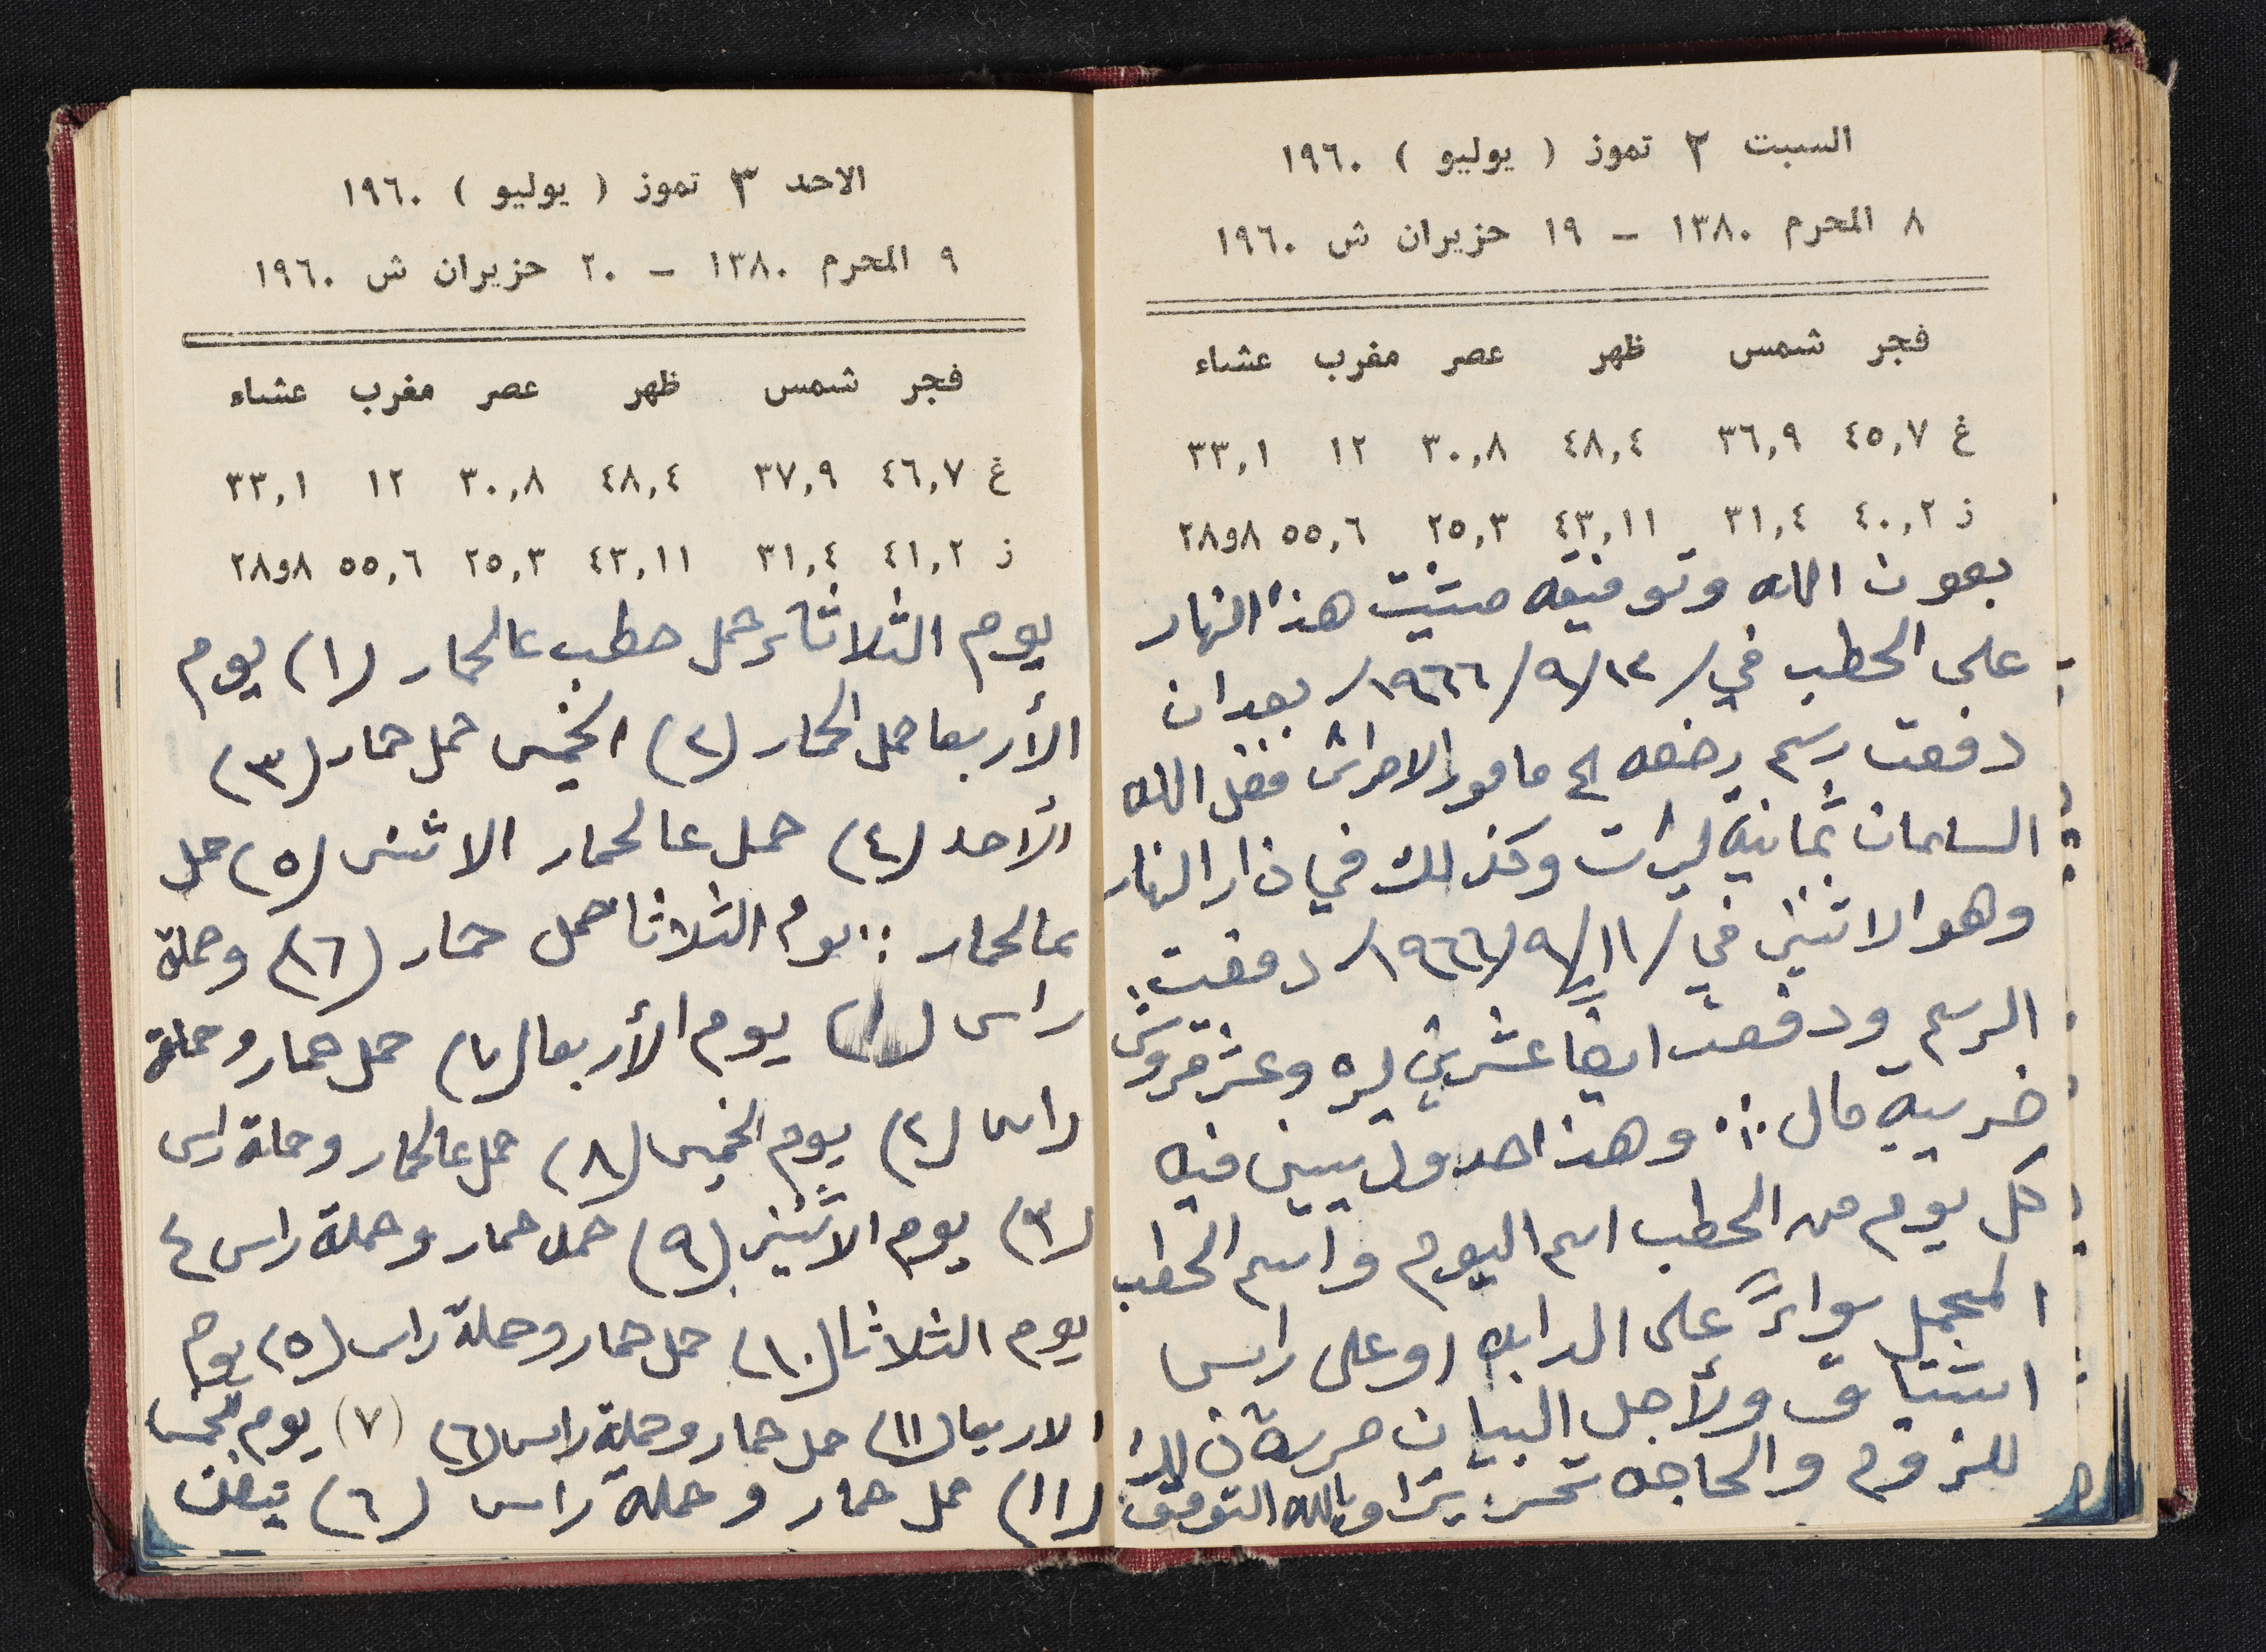 السبت ٢ تموز ( يوليو ) ١٩٦٠
٨ المحرم ١٣٨٠ – ١٩ حزيران ش ١٩٦٠
فجر شمس ظهر عصر مغرب عشاء
غ ٤٥,٧ ٣٦,٩ ٤٨,٤ ٣٠,٨ ١٢ ٣٣,١
ز ٤٠,٢ ٣١,٤ ٤٣,١١ ٢٥,٣ ٥٥,٦ ٨و٢٨
بعون الله وتوفيقه مشيت هذا النهار
على الحطب في /١٢/٩/١٩٦٦/ بعد ان
دفعت رسم رخصه الى مامور الاحراش فضل الله
السلمان ثمانية ليرات وكذلك في ذار النهار
وهو الاثنين في /١١/٩/١٩٦٦/ دفعت
الرسم ودفعت ايضا عشرين ليره وعشر قروش
ضريبة مال ∴ وهذا جدول يبين فيه
كل يوم من الحطب اسم اليوم واسم الحطب
المجمل سواءً على الدابه او على راس
اشتياق ولأجل البيان حررة ذلك
للزوم والحاجه تحريرا وبالله التوفيق
الاحد ٣ تموز ( يوليو ) ١٩٦٠
٩ المحرم ١٣٨٠ – ٢٠ حزيران ش ١٩٦٠
فجر شمس ظهر عصر مغرب عشاء
غ ٤٦,٧ ٣٧,٩ ٤٨,٤ ٣٠,٨ ١٢ ٣٣,١
ز ٤١,٢ ٣١,٤ ٤٣,١١ ٢٥,٣ ٥٥,٦ ٨و٢٨
يوم الثلاثاء حمل حطب عالحمار (١) يوم
الأربعا حمل الحمار (٢) الخميس حمل حمار (٣)
الأحد (٤) حمل عالحمار الاثنين (٥) حمل
عالحمار :: يوم الثلاثا حمل حمار (٦) وحملة
راس (١) يوم الأربعا (٧) حمل حمار وحملة
راس (٢) يوم الخميس (٨) حمل عالحمار وحملة راس
(٣) يوم الاثنين (٩) حمل حمار وحملة راس ٤
يوم الثلاثا (١٠) حمل حمار وحملة راس (٥) يوم
الاربعا (١١) حمل حمار وحملة راس (٦) (٧) يوم الخميس
(١١) حمل حمار وحملة راس (٦)